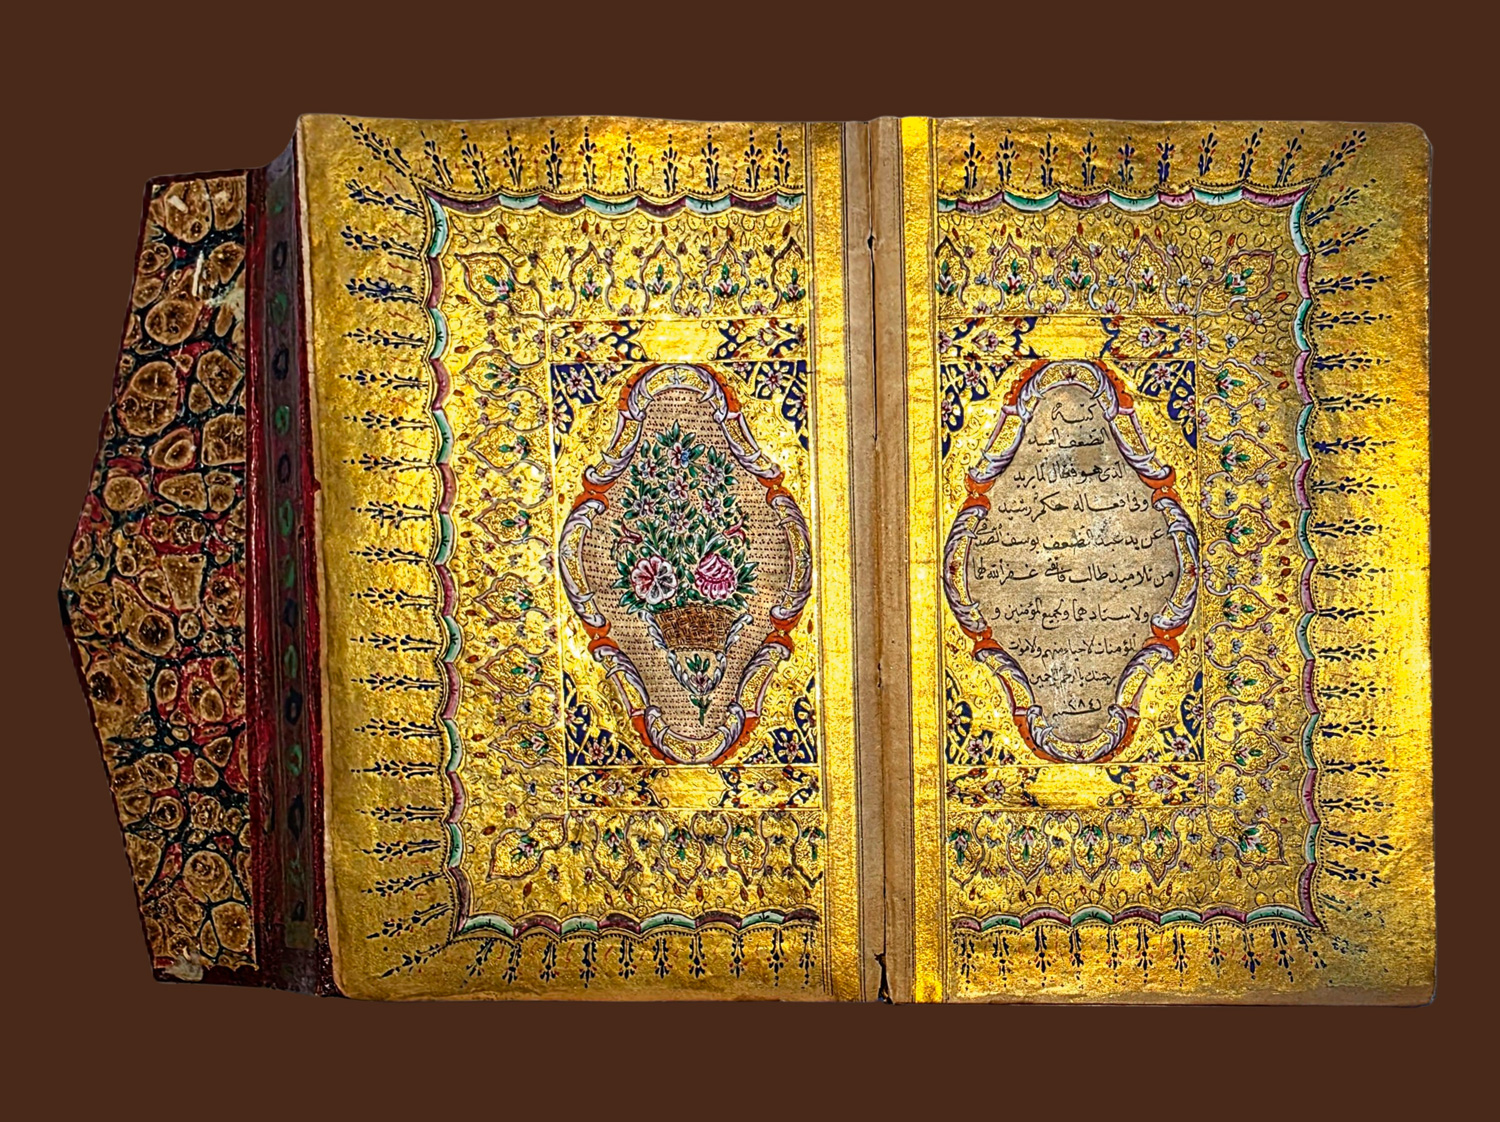 كتبه
الضعيف العبيد
الذى هو فعال لما يريد
وفى افعاله حكم رشيد
عن يد عبد الضعيف يوسف
من تلاميذ طالب غفر الله لهما
ولاستاذهما ولجميع المؤمنين و
المؤمنات الاحياء منهم والاموات
برحمتك يا ارحم الراحمين